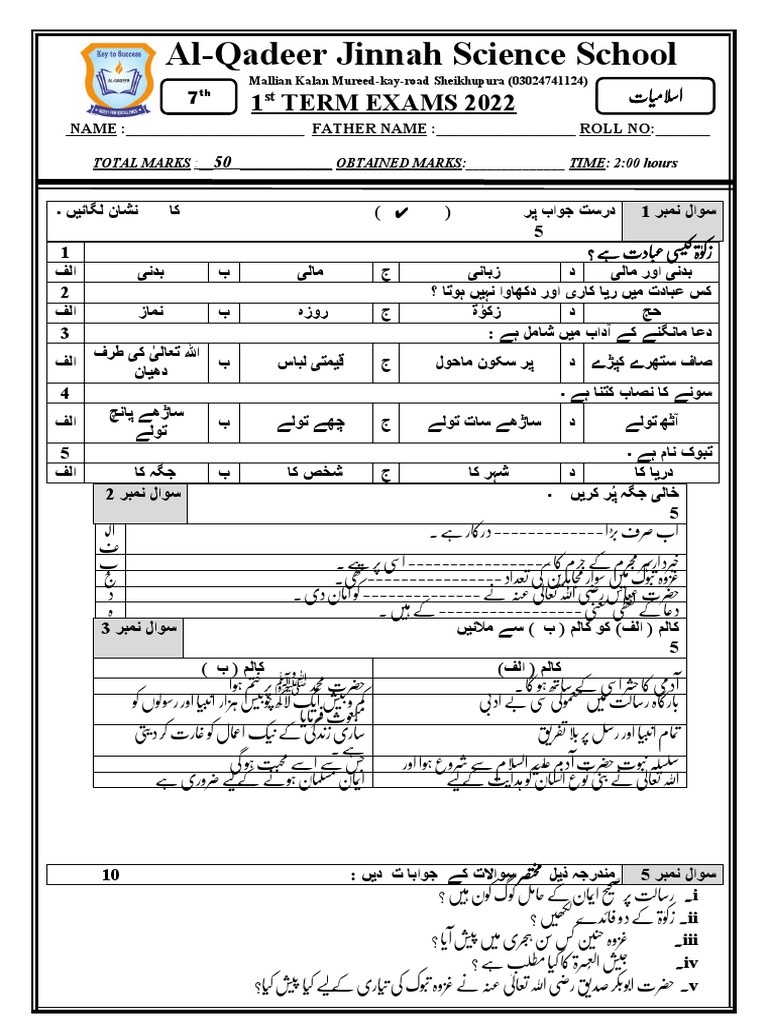 Key to Success
AL-QADEER
Al-Qadeer Jinnah Science School
Mallian Kalan Mureed-kay-road Sheikhupura (03024741124)
7th
1st TERM EXAMS 2022
اسلامیات
NAME : FATHER NAME : ROLL NO:
TOTAL MARKS : 50 OBTAINED MARKS: TIME: 2:00 hours
سوال نمبر 1 درست جواب پر ( ✔ ) کا نشان لگائیں ۔
5
1 زکوٰۃ کیسی عبادت ہے ؟
الف بدنی ب مالی ج زبانی د بدنی اور مالی
2 کس عبادت میں ریا کاری اور دکھاوا نہیں ہوتا ؟
الف نماز ب روزہ ج زکوٰۃ د حج
3 دعا مانگنے کے آداب میں شامل ہے :
الف اللہ تعالیٰ کی طرف دھیان ب قیمتی لباس ج پر سکون ماحول د صاف ستھرے کپڑے
4 سونے کا نصاب کتنا ہے ۔
الف ساڑھے پانچ تولے ب چھے تولے ج ساڑھے سات تولے د آٹھ تولے
5 تبوک نام ہے ۔
الف جگہ کا ب شخص کا ج شہر کا د دریا کا
سوال نمبر 2 خالی جگہ پُر کریں ۔
5
الف اب صرف بڑا ------------- درکار ہے ۔
ب خبردار ہر مجرم کے جرم کا ---------------- اسی پر ہے ۔
ج غزوہ تبوک میں سوار مجاہدین کی تعداد --------------- تھی۔
د حضرت عباس رضی اللہ تعالیٰ عنہ نے ------------- کو امان دی ۔
ہ دعا کے لفظی معنی ---------------- کے ہیں ۔
سوال نمبر 3 کالم ( الف) کو کالم ( ب ) سے ملائیں
5
کالم (الف) کالم ( ب )
آدمی کا حشر اسی کے ساتھ ہو گا۔ حضرت محمد ﷺ پر ختم ہوا
بارگاہ رسالت میں معمولی سی بے ادبی کم و بیش ایک لاکھ چوبیس ہزار انبیا اور رسولوں کو مبعوث فرمایا
تمام انبیا اور رسل پر بلا تفریق ساری زندگی کے نیک اعمال کو غارت کر دیتی ہے ۔
سلسلہ نبوت حضرت آدم علیہ السلام سے شروع ہوا اور جس سے اسے محبت ہو گی
اللہ تعالیٰ نے بنی نوع انسان کو ہدایت کے لیے ایمان مسلمان ہونے کے لیے ضروری ہے
سوال نمبر 5 مندرجہ ذیل مختصر سوالات کے جوابات دیں : 10
i۔ رسالت پر صحیح ایمان کے حامل لوگ کون ہیں ؟
ii۔ زکوٰۃ کے دو فائدے لکھیں ؟
iii۔ غزوہ حنین کس سن ہجری میں پیش آیا ؟
iv۔ جیش العسرۃ کا کیا مطلب ہے ؟
v۔ حضرت ابوبکر صدیق رضی اللہ تعالیٰ عنہ نے غزوہ تبوک کی تیاری کے لیے کیا پیش کیا؟